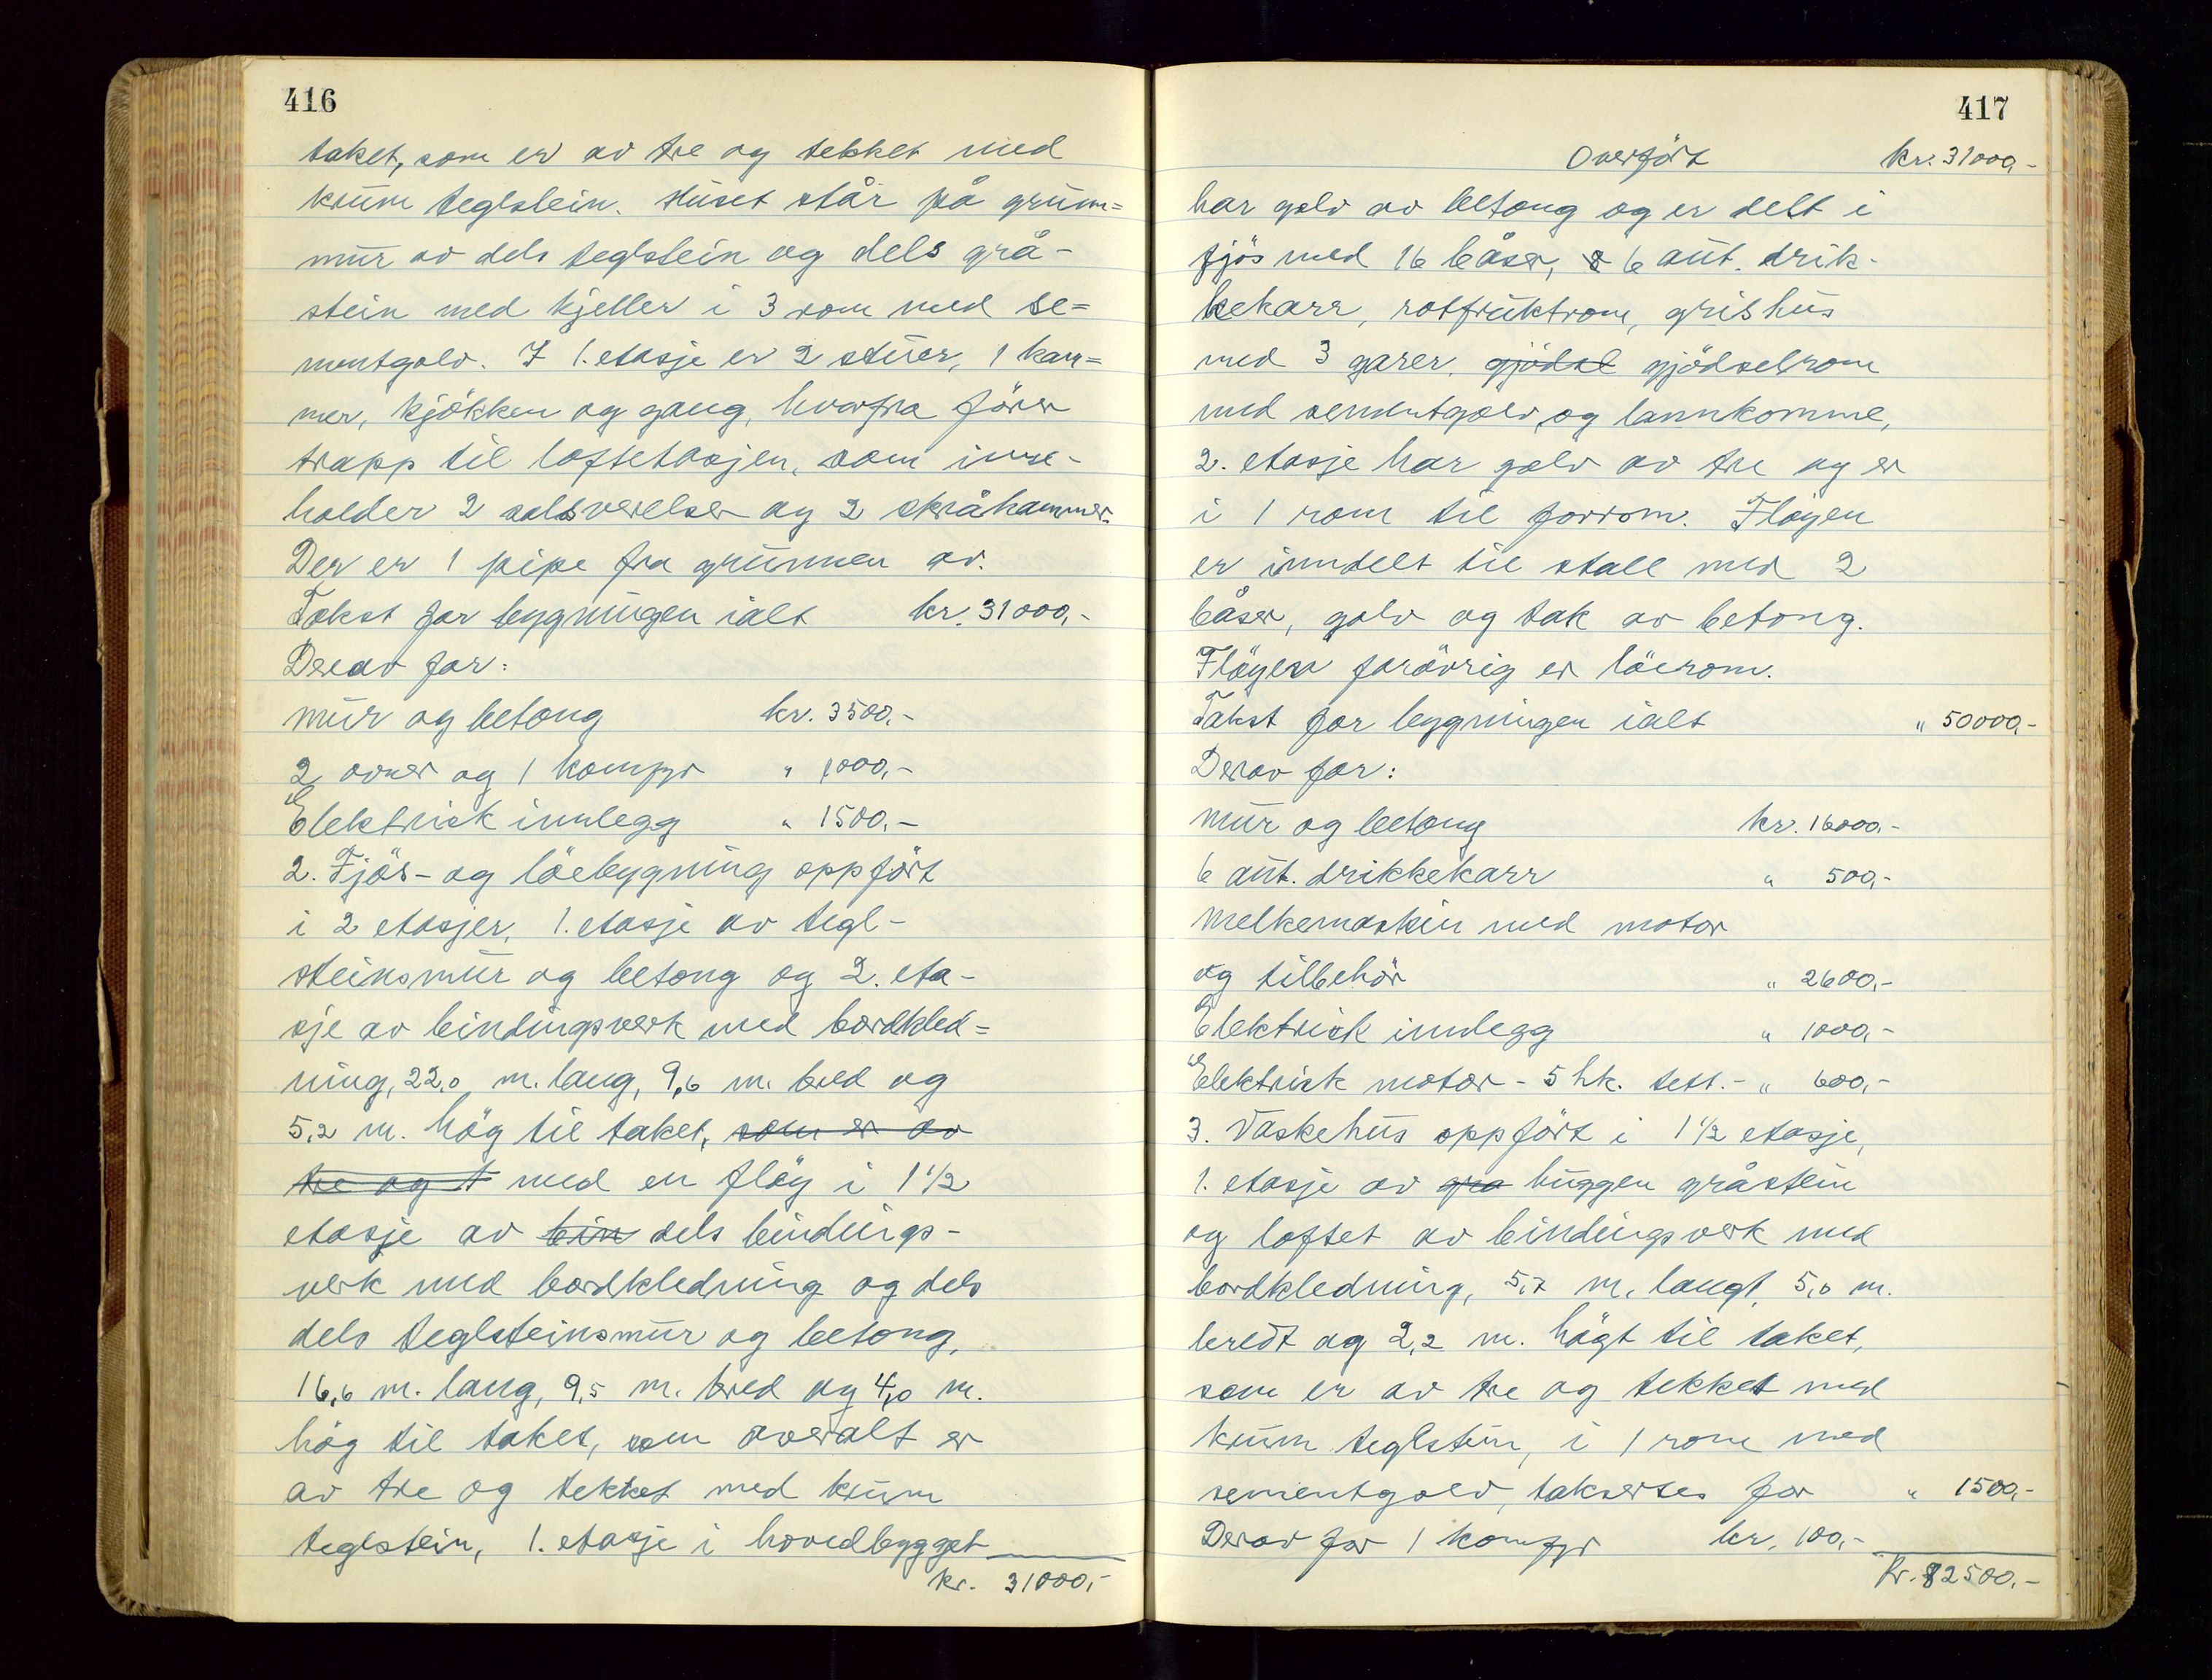 416
taket, som er av tre og tekket med
krum teglstein. Huset står på grunn=
mur av dels teglstein og dels grå-
stein med kjeller i 3 rom med se=
mentgolv. I 1. etasje er 2 stuer, 1 kam=
mer, kjökken og gang, hvorfra förer
trapp til loftetasjen, som inne-
holder 2 soloverelser og 2 skråkammer.
Der er 1 pipe fra grunnen av.
Takst for bygningen ialt kr. 31000,-
Derav for:
mur og betong kr. 3500,-
2 ovner og 1 komfyr " 1000,-
Elektrisk innlegg " 1500,-
2. Fjös- og löebygning oppfört
i 2 etasjer, 1. etasje av tegl-
steinsmur og betong og 2. eta-
sje av bindingsverk med bordkled=
ning, 22,0 m. lang, 9,6 m. bred og
5,2 m. hög til taket, som er av
tre og t med en flöy i 1 1/2
etasje av bin dels bindings-
verk med bordkledning og dels
dels teglsteinsmur og betong,
16,6 m. lang, 9,5 m. bred og 4,0 m.
hög til taket, som overalt er
av tre og tekket med krum
teglstein, 1. etasje i hovedbygget
kr. 31000,-
417
Overfört kr. 31000,-
har golv av betong og er delt i
fjös med 16 båser, 8 6 aut. drik-
kekarr, rotfruktrom, grishus
med 3 garer, gjödsl gjödselrom
med sementgolv og lannkomme,
2. etasje har golv av tre og er
i 1 rom til forrom. Flöyen
er inndelt til stall med 2
båser, golv og tak av betong.
Flöyen forövrig er löerom.
Takst for bygningen ialt " 50000,-
Derav for:
mur og betong kr. 16000,-
6 aut. drikkekarr " 500,-
Melkemaskin med motor
og tilbehör " 2600,-
Elektrisk innlegg " 1000,-
Elektrisk motor - 5 hk. tett. - " 600,-
3. Vaskehus oppfört i 1 1/2 etasje,
1. etasje av gra huggen gråstein
og loftet av bindingsverk med
bordkledning, 5,7 m. langt, 5,0 m.
bredt og 2,2 m. högt til taket,
som er av tre og tekket med
krum teglstein, i 1 rom med
sementgolv, takseres for " 1500,-
Derav for 1 komfyr kr. 100,-
Kr. 82500,-